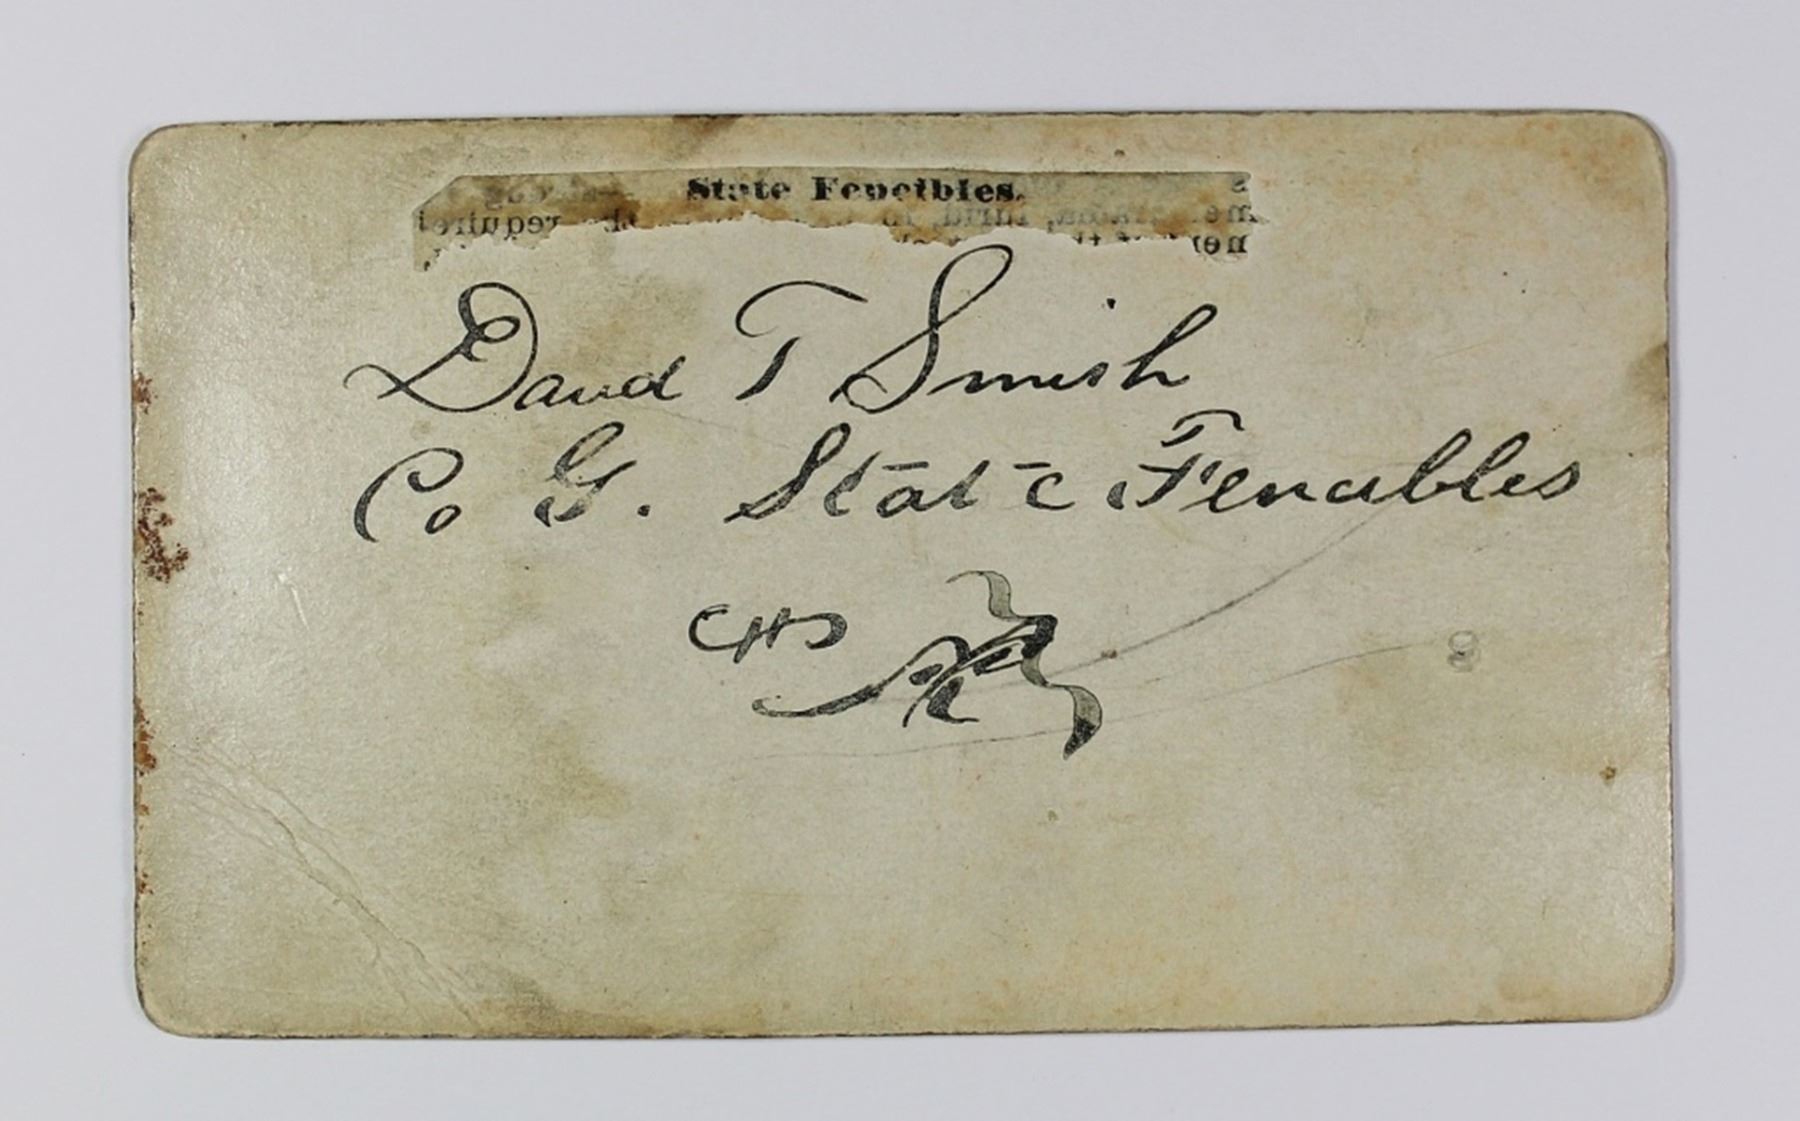 State Fencibles.
David T Smith
Co G. State Fencibles
8